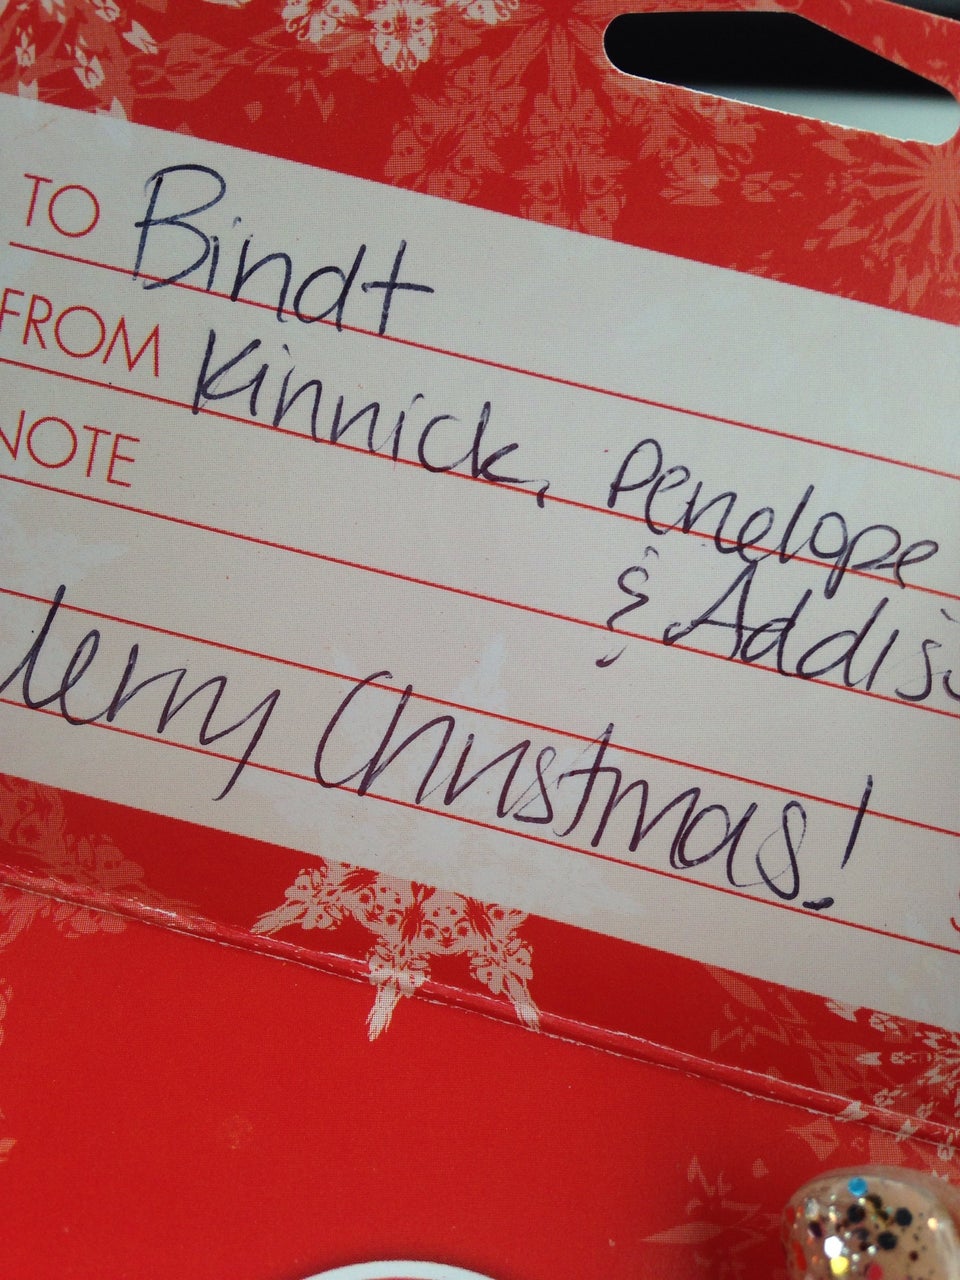 TO Bindt
FROM Kinnick, Penelope
& Addis
NOTE
Merry Christmas!